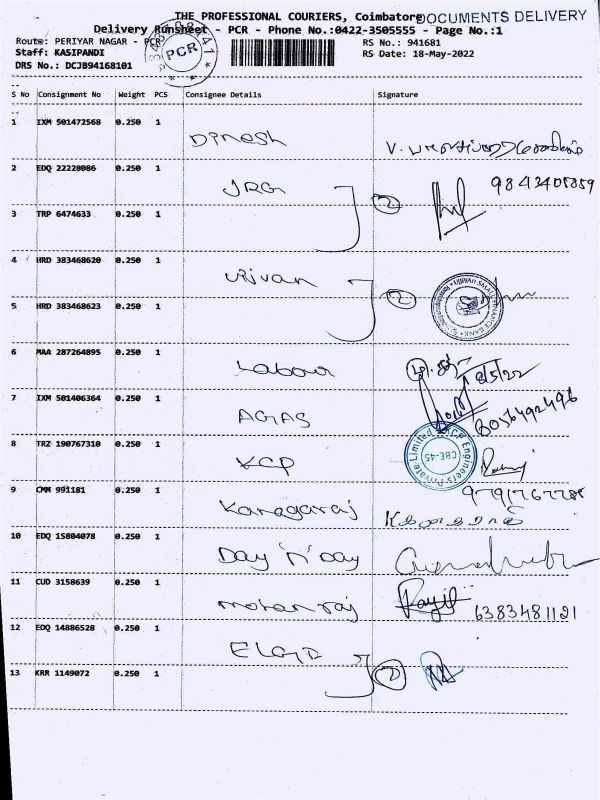 THE PROFESSIONAL COURIERS, Coimbatore DOCUMENTS DELIVERY
Delivery Runsheet - PCR - Phone No.:0422-3505555 - Page No.:1
Route: PERIYAR NAGAR - PCR
RS No.: 941681
Staff: KASIPANDI
RS Date: 18-May-2022
DRS No.: DCJB94168101
PCR
S No Consignment No Weight PCS Consignee Details Signature
1 IXM 501472568 0.250 1 Dinesh
2 EDQ 22228086 0.250 1 JRG 2 9843405859
3 TRP 6474633 0.250 1
4 HRD 383468620 0.250 1 Ujivan 2
UJJIVAN SMALL FINANCE BANK
5 HRD 383468623 0.250 1
6 MAA 287264895 0.250 1 Labour 18/5/22
7 IXM 501406364 0.250 1 AGAS 8056492496
8 TRZ 190767310 0.250 1 VCP
Engineers Private Limited
CBE-45
9 CMM 991181 0.250 1 Kanagaraj 9791767788
கனகராஜ்
10 EDQ 15804078 0.250 1 Day 'n' Day
11 CUD 3158639 0.250 1 mohan raj 6383481121
12 EDQ 14886528 0.250 1 ELGI 2
13 KRR 1149072 0.250 1